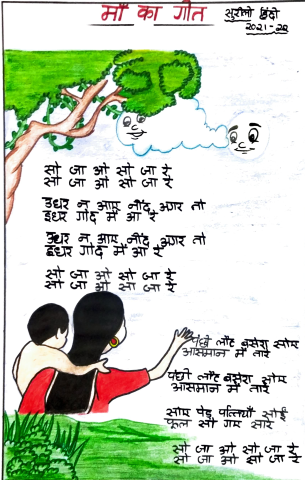 माँ का गीत
सुरीली हिंदी
२०२१-२२
सो जा ओ सो जा रे
सो जा ओ सो जा रे
उधर न आए नींद अगर तो
इधर गोद में आ रे
उधर न आए नींद अगर तो
इधर गोद में आ रे
सो जा ओ सो जा रे
सो जा ओ सो जा रे
पंछी लौट बसेरा सोए
आसमान में तारे
पंछी लौट बसेरा सोए
आसमान में तारे
सोए पेड़ पत्तियाँ सोई
फूल सो गए सारे
सो जा ओ सो जा रे
सो जा ओ सो जा रे